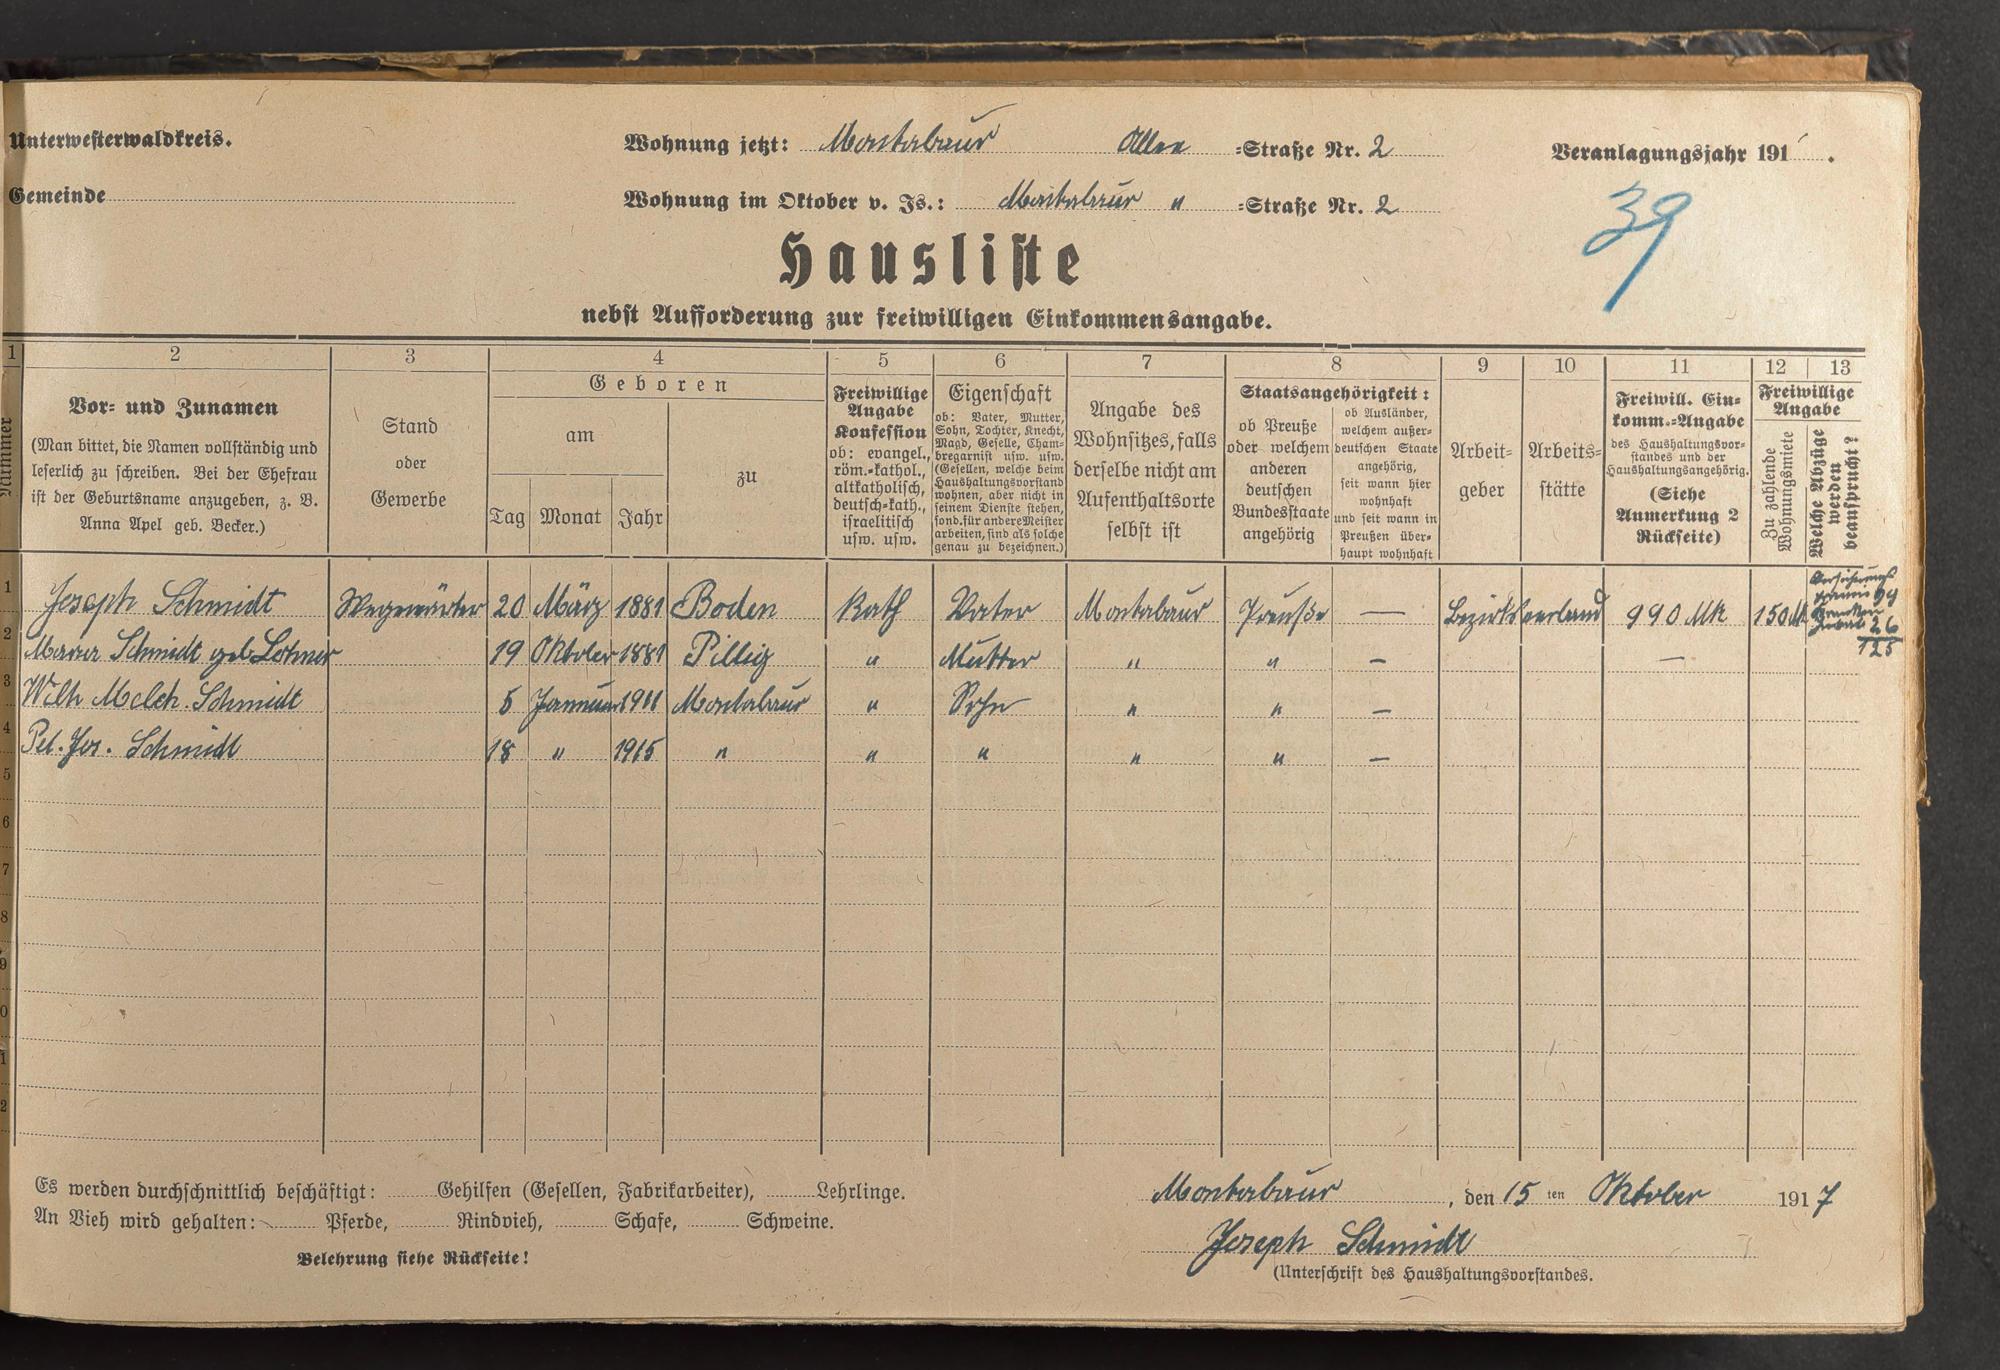 Unterwesterwaldkreis.
Wohnung jetzt: Montabaur Allee =Straße Nr. 2
Veranlagungsjahr 191 .
Gemeinde
Wohnung im Oktober v. Js.: Montabaur " =Straße Nr. 2
39
Hausliste
nebst Aufforderung zur freiwilligen Einkommensangabe.
1 2 3 4 5 6 7 8 9 10 11 12 13
Nummer
Vor= und Zunamen
(Man bittet, die Namen vollständig und
leserlich zu schreiben. Bei der Ehefrau
ist der Geburtsname anzugeben, z. B.
Anna Apel geb. Becker.)
Stand
oder
Gewerbe
Geboren
am
Tag Monat Jahr
zu
Freiwillige
Angabe
Konfession
ob: evangel.,
röm.=kathol.,
altkatholisch,
deutsch=kath.,
israelitisch
usw. usw.
Eigenschaft
ob: Vater, Mutter,
Sohn, Tochter, Knecht,
Magd, Geselle, Cham=
bregarnist usw. usw.
(Gesellen, welche beim
Haushaltungsvorstand
wohnen, aber nicht in
seinem Dienste stehen,
sond. für andere Meister
arbeiten, sind als solche
genau zu bezeichnen.)
Angabe des
Wohnsitzes, falls
derselbe nicht am
Aufenthaltsorte
selbst ist
Staatsangehörigkeit:
ob Preuße
oder welchem
anderen
deutschen
Bundesstaate
angehörig
ob Ausländer,
welchem außer=
deutschen Staate
angehörig,
seit wann hier
wohnhaft
und seit wann in
Preußen über=
haupt wohnhaft
Arbeit=
geber
Arbeits=
stätte
Freiwill. Ein=
komm.=Angabe
des Haushaltungsvor=
standes und der
Haushaltungsangehörig.
(Siehe
Anmerkung 2
Rückseite)
Freiwillige
Angabe
Zu zahlende
Wohnungsmiete
Welche Abzüge
werden
beansprucht?
1 Joseph Schmidt Wegewärter 20 März 1881 Boden Kath Vater Montabaur Preuße — Bezirksverband 990 Mk 150 M
26
125
2 Schmidt geb. 19 Oktober 1881 Pillig " Mutter " " — —
3 Wilh Melch. Schmidt 5 Januar 1911 Montabaur " Sohn " " —
4 Pet. Jos. Schmidt 18 " 1915 " " " " " —
5
6
7
8
9
0
1
2
Es werden durchschnittlich beschäftigt: Gehilfen (Gesellen, Fabrikarbeiter), Lehrlinge.
An Vieh wird gehalten: Pferde, Rindvieh, Schafe, Schweine.
Belehrung siehe Rückseite!
Montabaur, den 15 ten Oktober 1917
Joseph Schmidt
(Unterschrift des Haushaltungsvorstandes.